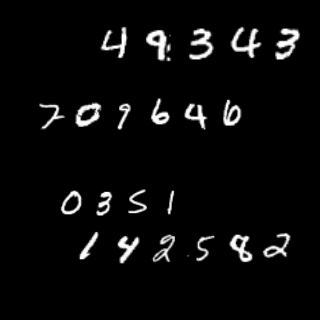 49343
709646
0351
142582